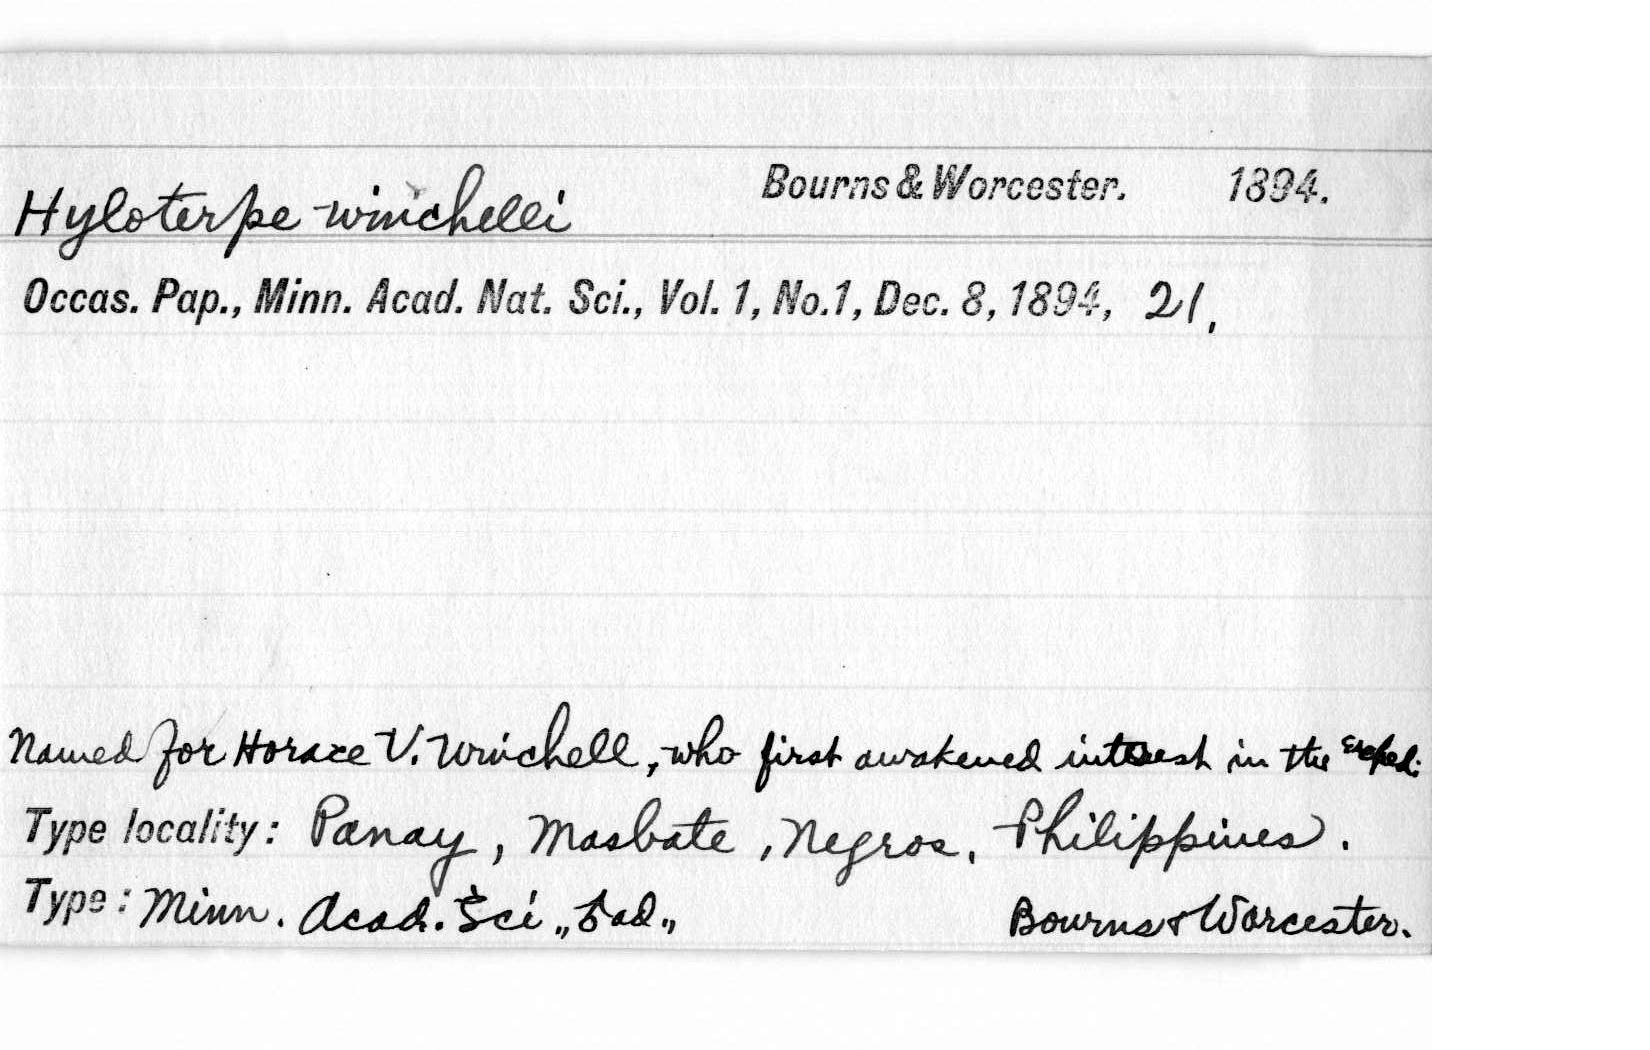 Hyloterpe winchelli Bourns & Worcester. 1894.
Occas. Pap., Minn. Acad. Nat. Sci., Vol. 1, No.1, Dec. 8, 1894, 21.
Named for Horace V. Winchell, who first awakened interest in the exped.
Type locality: Panay, Masbate, Negros, Philippines.
Type: Minn. Acad. Sci Bourns & Worcester.